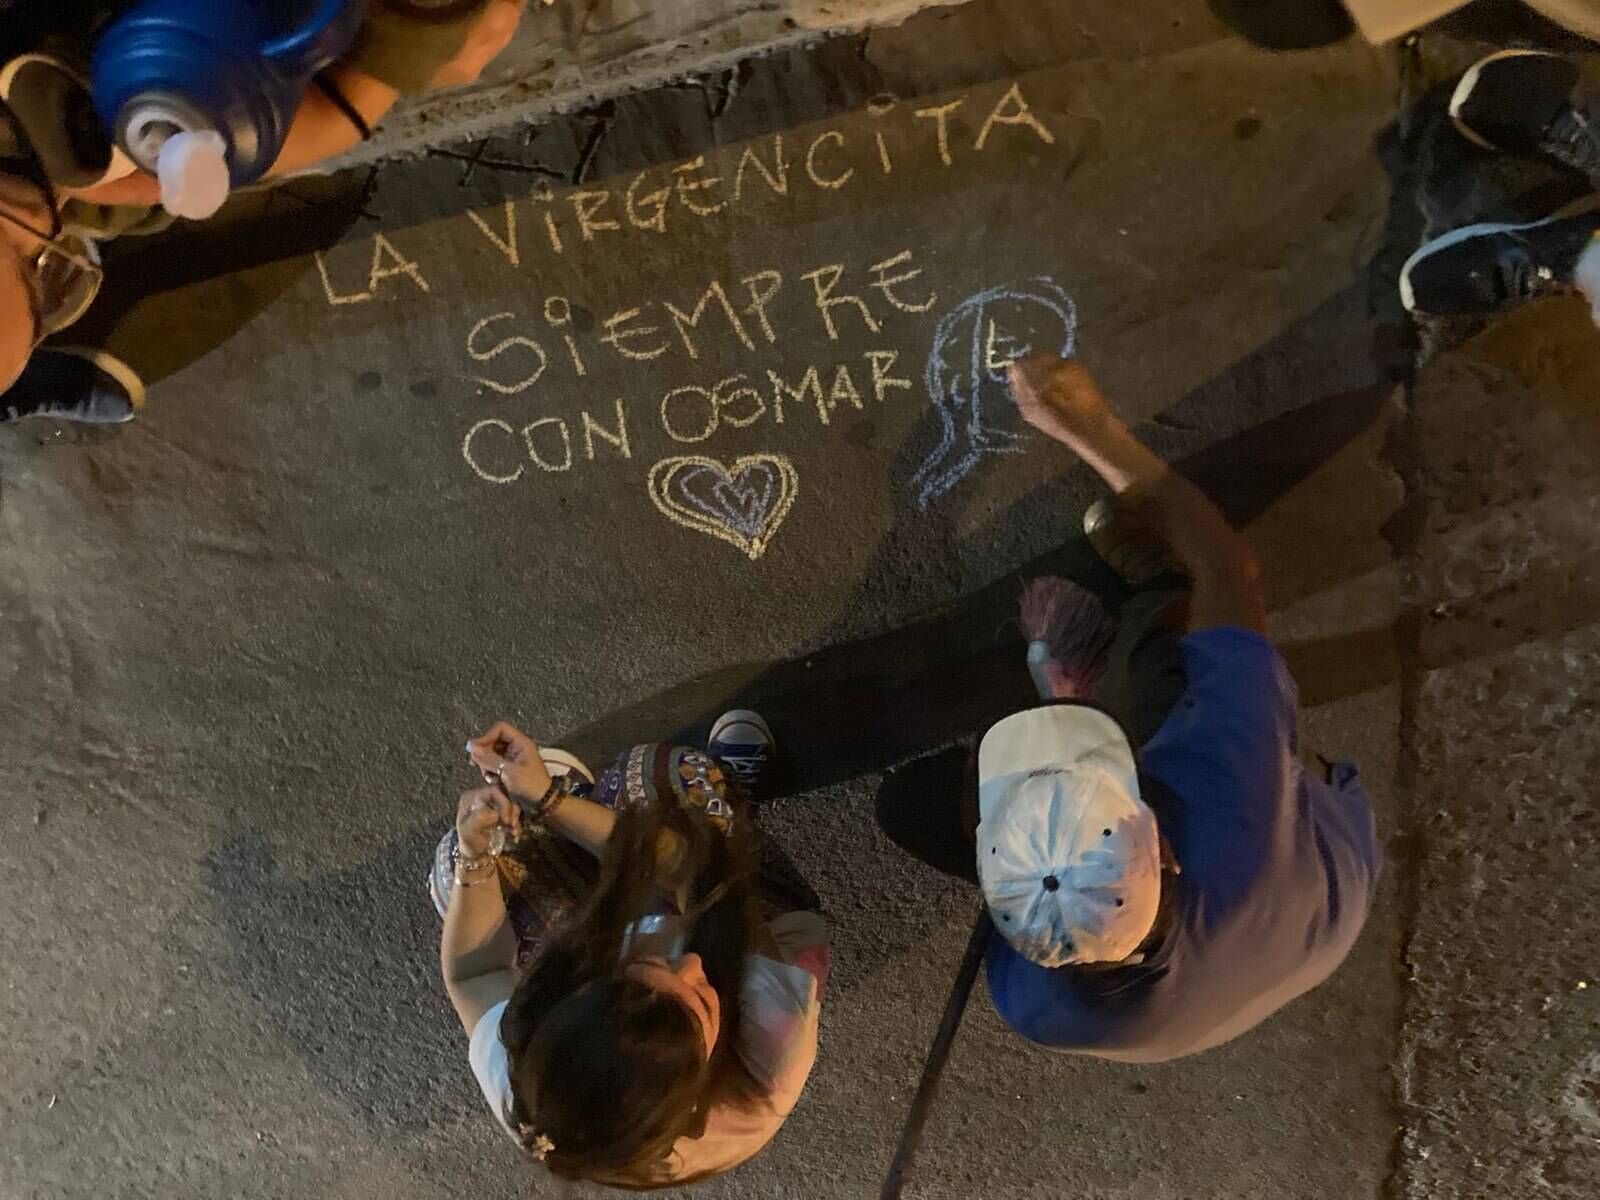 LA VIRGENCITA
SIEMPRE
CON OSMAR